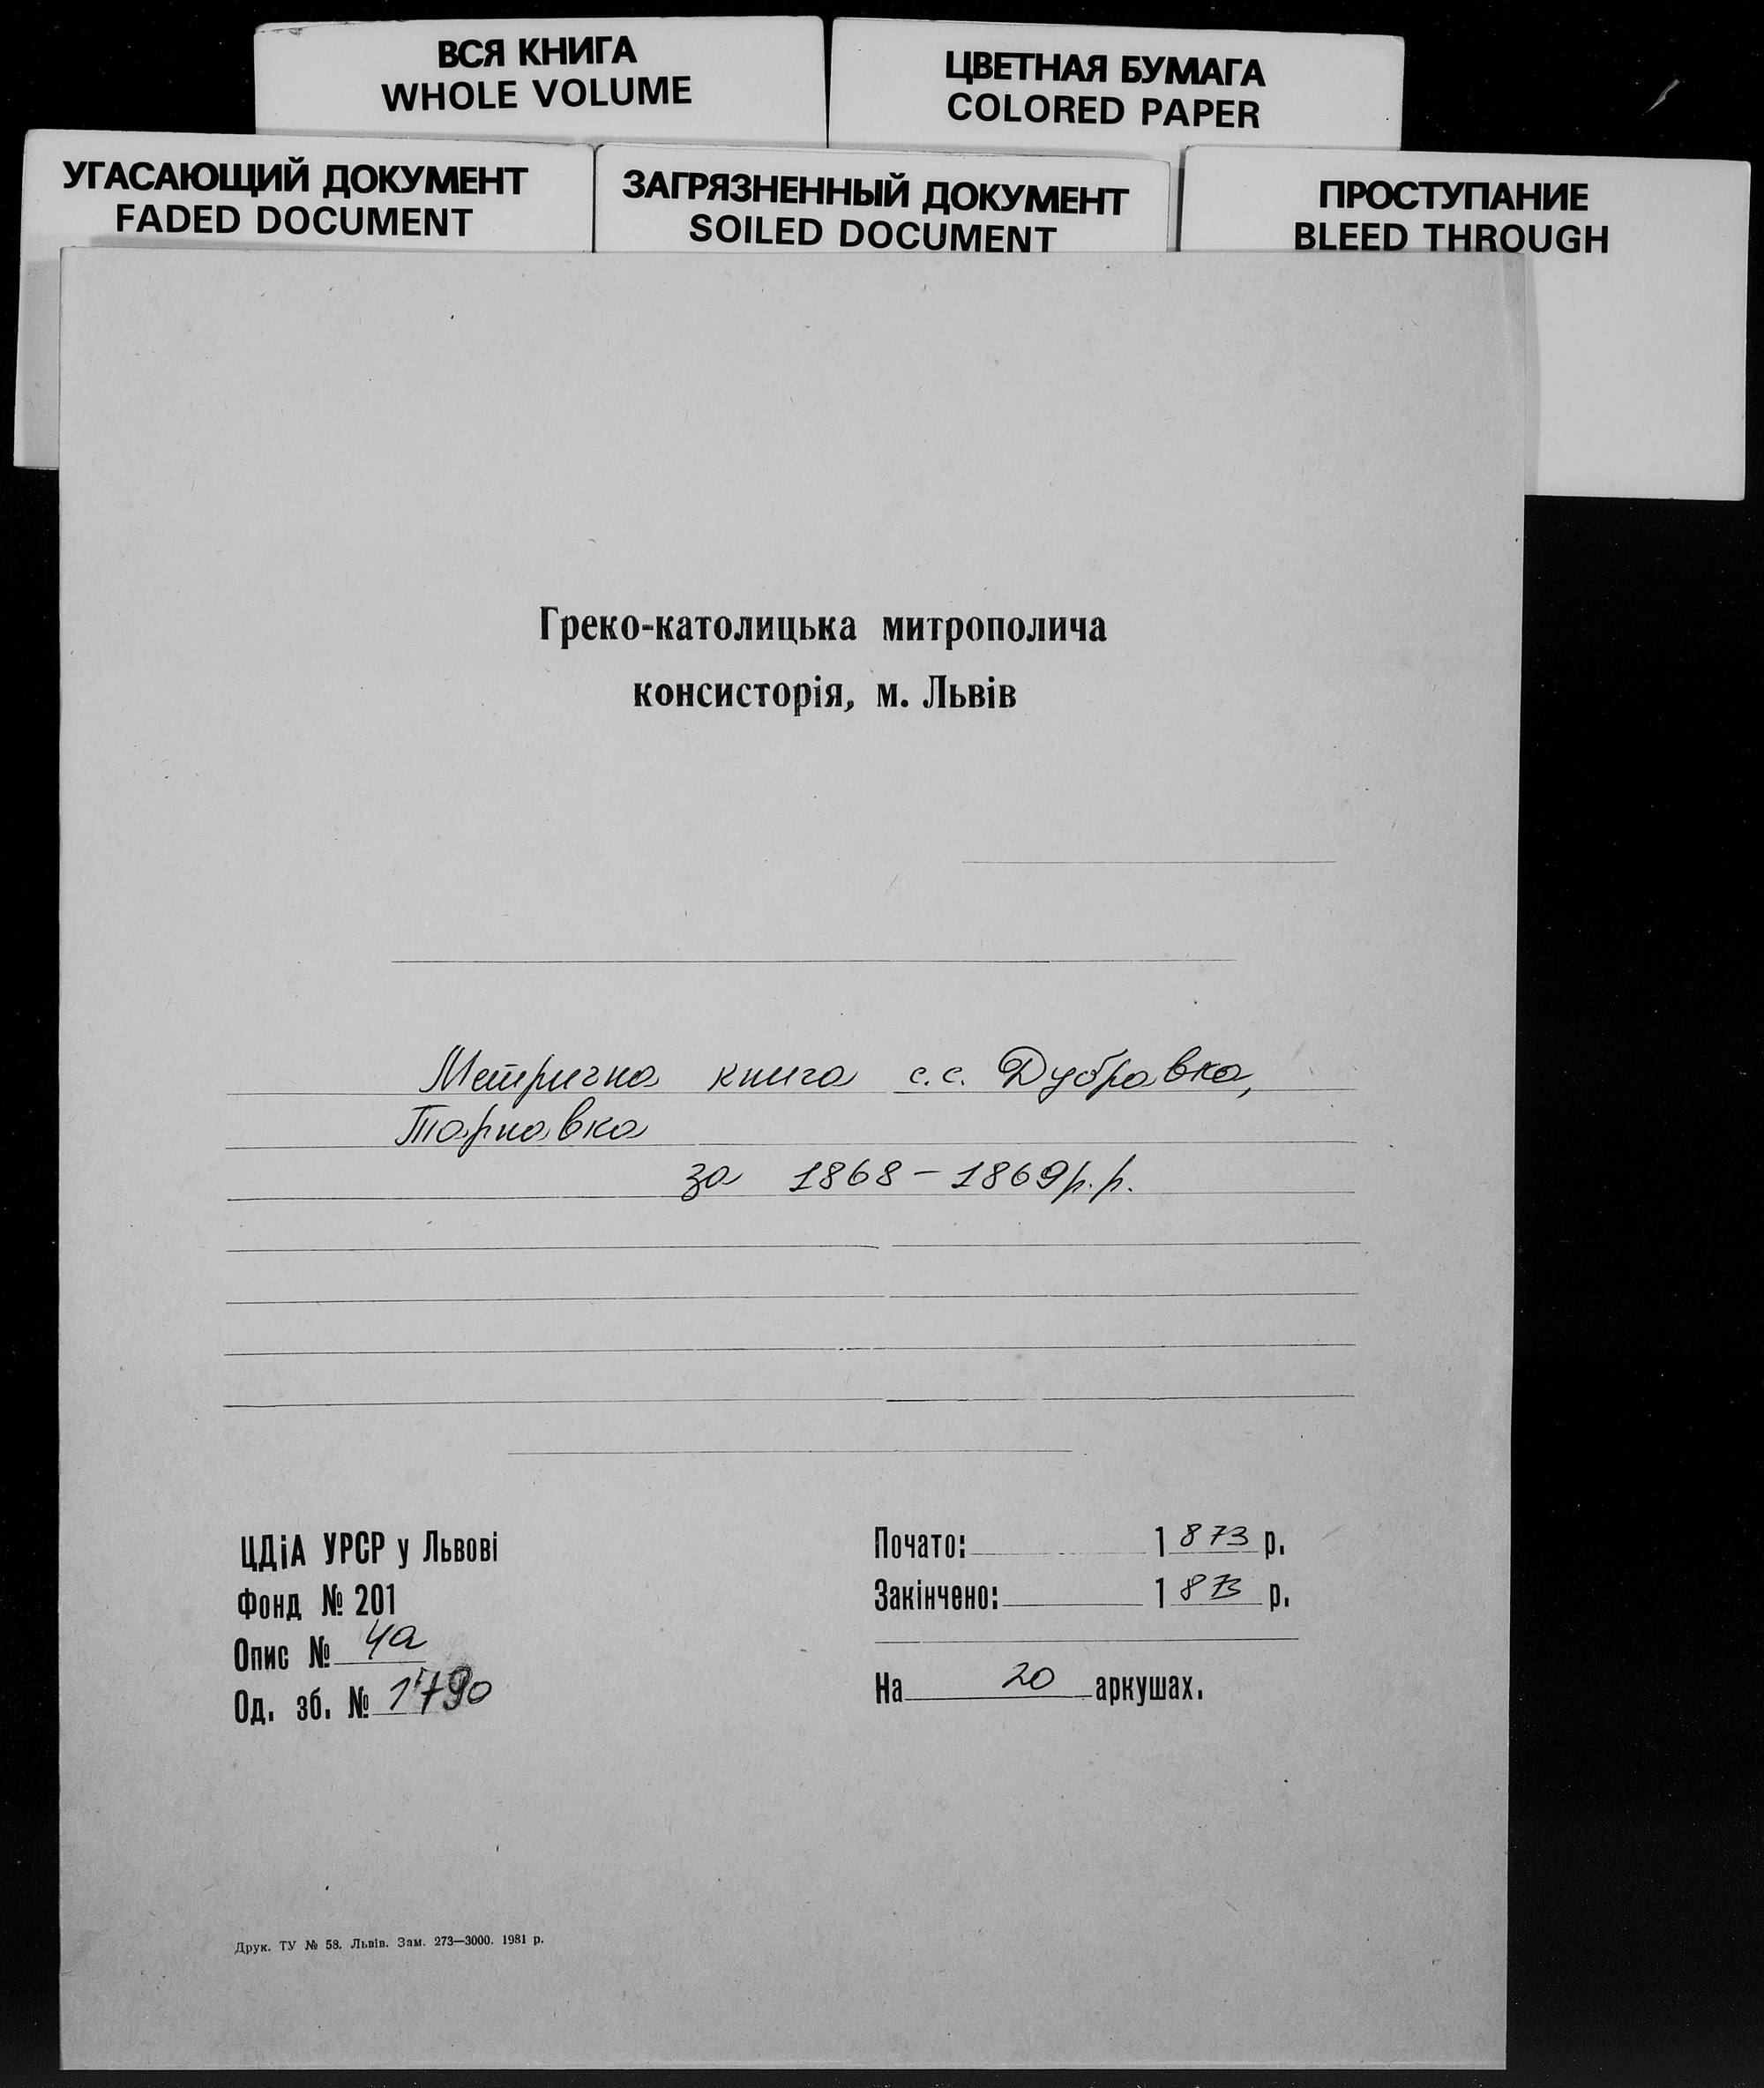 ВСЯ КНИГА
WHOLE VOLUME
ЦВЕТНАЯ БУМАГА
COLORED PAPER
УГАСАЮЩИЙ ДОКУМЕНТ
FADED DOCUMENT
ЗАГРЯЗНЕННЫЙ ДОКУМЕНТ
SOILED DOCUMENT
ПРОСТУПАНИЕ
BLEED THROUGH
Греко-католицька митрополича
консисторія, м. Львів
Метрична книга с.с. Дубравка,
Тарнавка
за 1868 – 1869 р.р.
ЦДіА УРСР у Львові
Фонд № 201
Опис № 4а
Од. зб. № 1790
Почато: 1873 р.
Закінчено: 1873 р.
На 20 аркушах.
Друк. ТУ № 58. Львів. Зам. 273—3000. 1981 р.